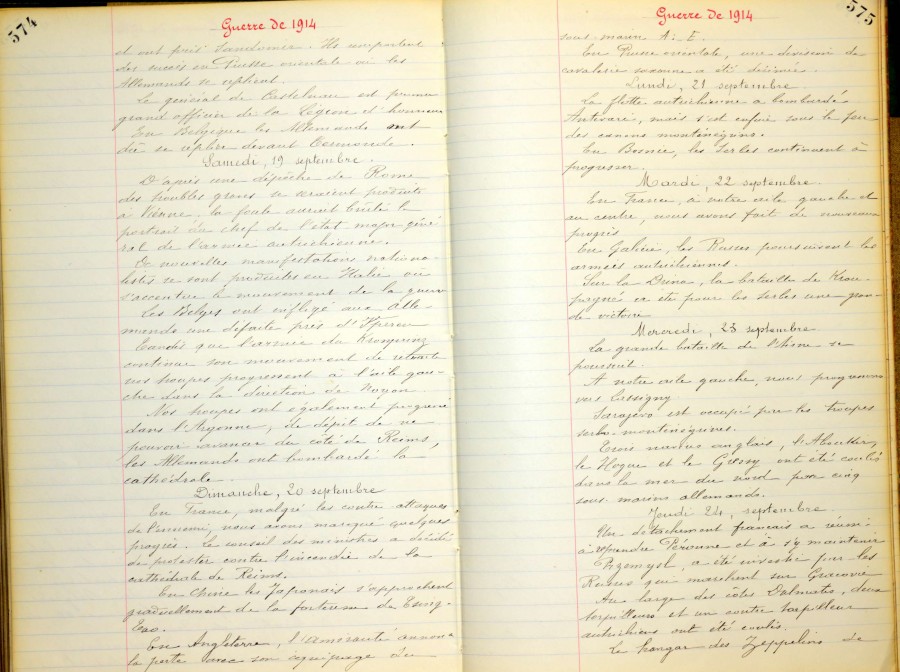 574
Guerre de 1914
et ont pris Sandomir. Ils remportent
des succès en Prusse orientale où les
Allemands se replient.
Le général de Castelnau est promu
grand officier de la Légion d'honneur
En Belgique les Allemands ont
dû se replier devant Termonde.
Samedi, 19 septembre.
D'après une dépêche de Rome
des troubles graves se seraient produits
à Vienne. la foule aurait brûlé le
portrait du chef de l'état major géné-
ral de l'armée autrichienne.
De nouvelles manifestations nationa-
listes se sont produites en Italie où
s'accentue le mouvement de la guerre
Les Belges ont infligé aux Alle-
mands une défaite près d'
Tandis que l'armée du Kronprinz
continue son mouvement de retraite
nos troupes progressent à l'aile gau-
che dans la direction de Noyon.
Nos troupes ont également progressé
dans l'Argonne, de dépit de ne
pouvoir avancer du côté de Reims,
les Allemands ont bombardé la
cathédrale.
Dimanche, 20 septembre
En France, malgré les contre attaques
de l'ennemi, nous avons marqué quelques
progrès. Le conseil des ministres a décidé
de protester contre l'incendie de la
cathédrale de Reims.
En Chine les Japonais s'approchent
graduellement de la forteresse de Tsing-
Tao.
En Angleterre, l'amirauté annonce
la perte avec son équipage du
575
Guerre de 1914
sous-marin A. E.
En Prusse orientale, une division de
cavalerie saxonne a été décimée.
Lundi, 21 septembre
La flotte autrichienne a bombardé
Antivari, mais s'est enfuie sous le feu
des canons monténégrins.
En Bosnie, les Serbes continuent à
progresser.
Mardi, 22 septembre.
En France, à notre aile gauche et
au centre, nous avons fait de nouveaux
progrès
En Galicie, les Russes poursuivent les
armées autrichiennes.
Sur la Drina, la bataille de Krou-
pagné a été pour les Serbes une gran-
de victoire
Mercredi, 23 septembre
La grande bataille de l'Aisne se
poursuit.
A notre aile gauche, nous progressons
vers Lassigny
Sarajevo est occupé par les troupes
serbo-monténégrines.
Trois navires anglais, l'Aboukir,
le Hogue et le Cressy ont été coulés
dans la mer du nord par cinq
sous-marins allemands.
Jeudi 24, septembre.
Un détachement français a réussi
à reprendre Péronne et à s'y maintenir
Przemysl, a été investie par les
Russes qui marchent sur Cracovie
Au large des côtes Dalmates, deux
torpilleurs et un contre torpilleur
autrichiens ont été coulés.
Le hangar des Zeppelins de